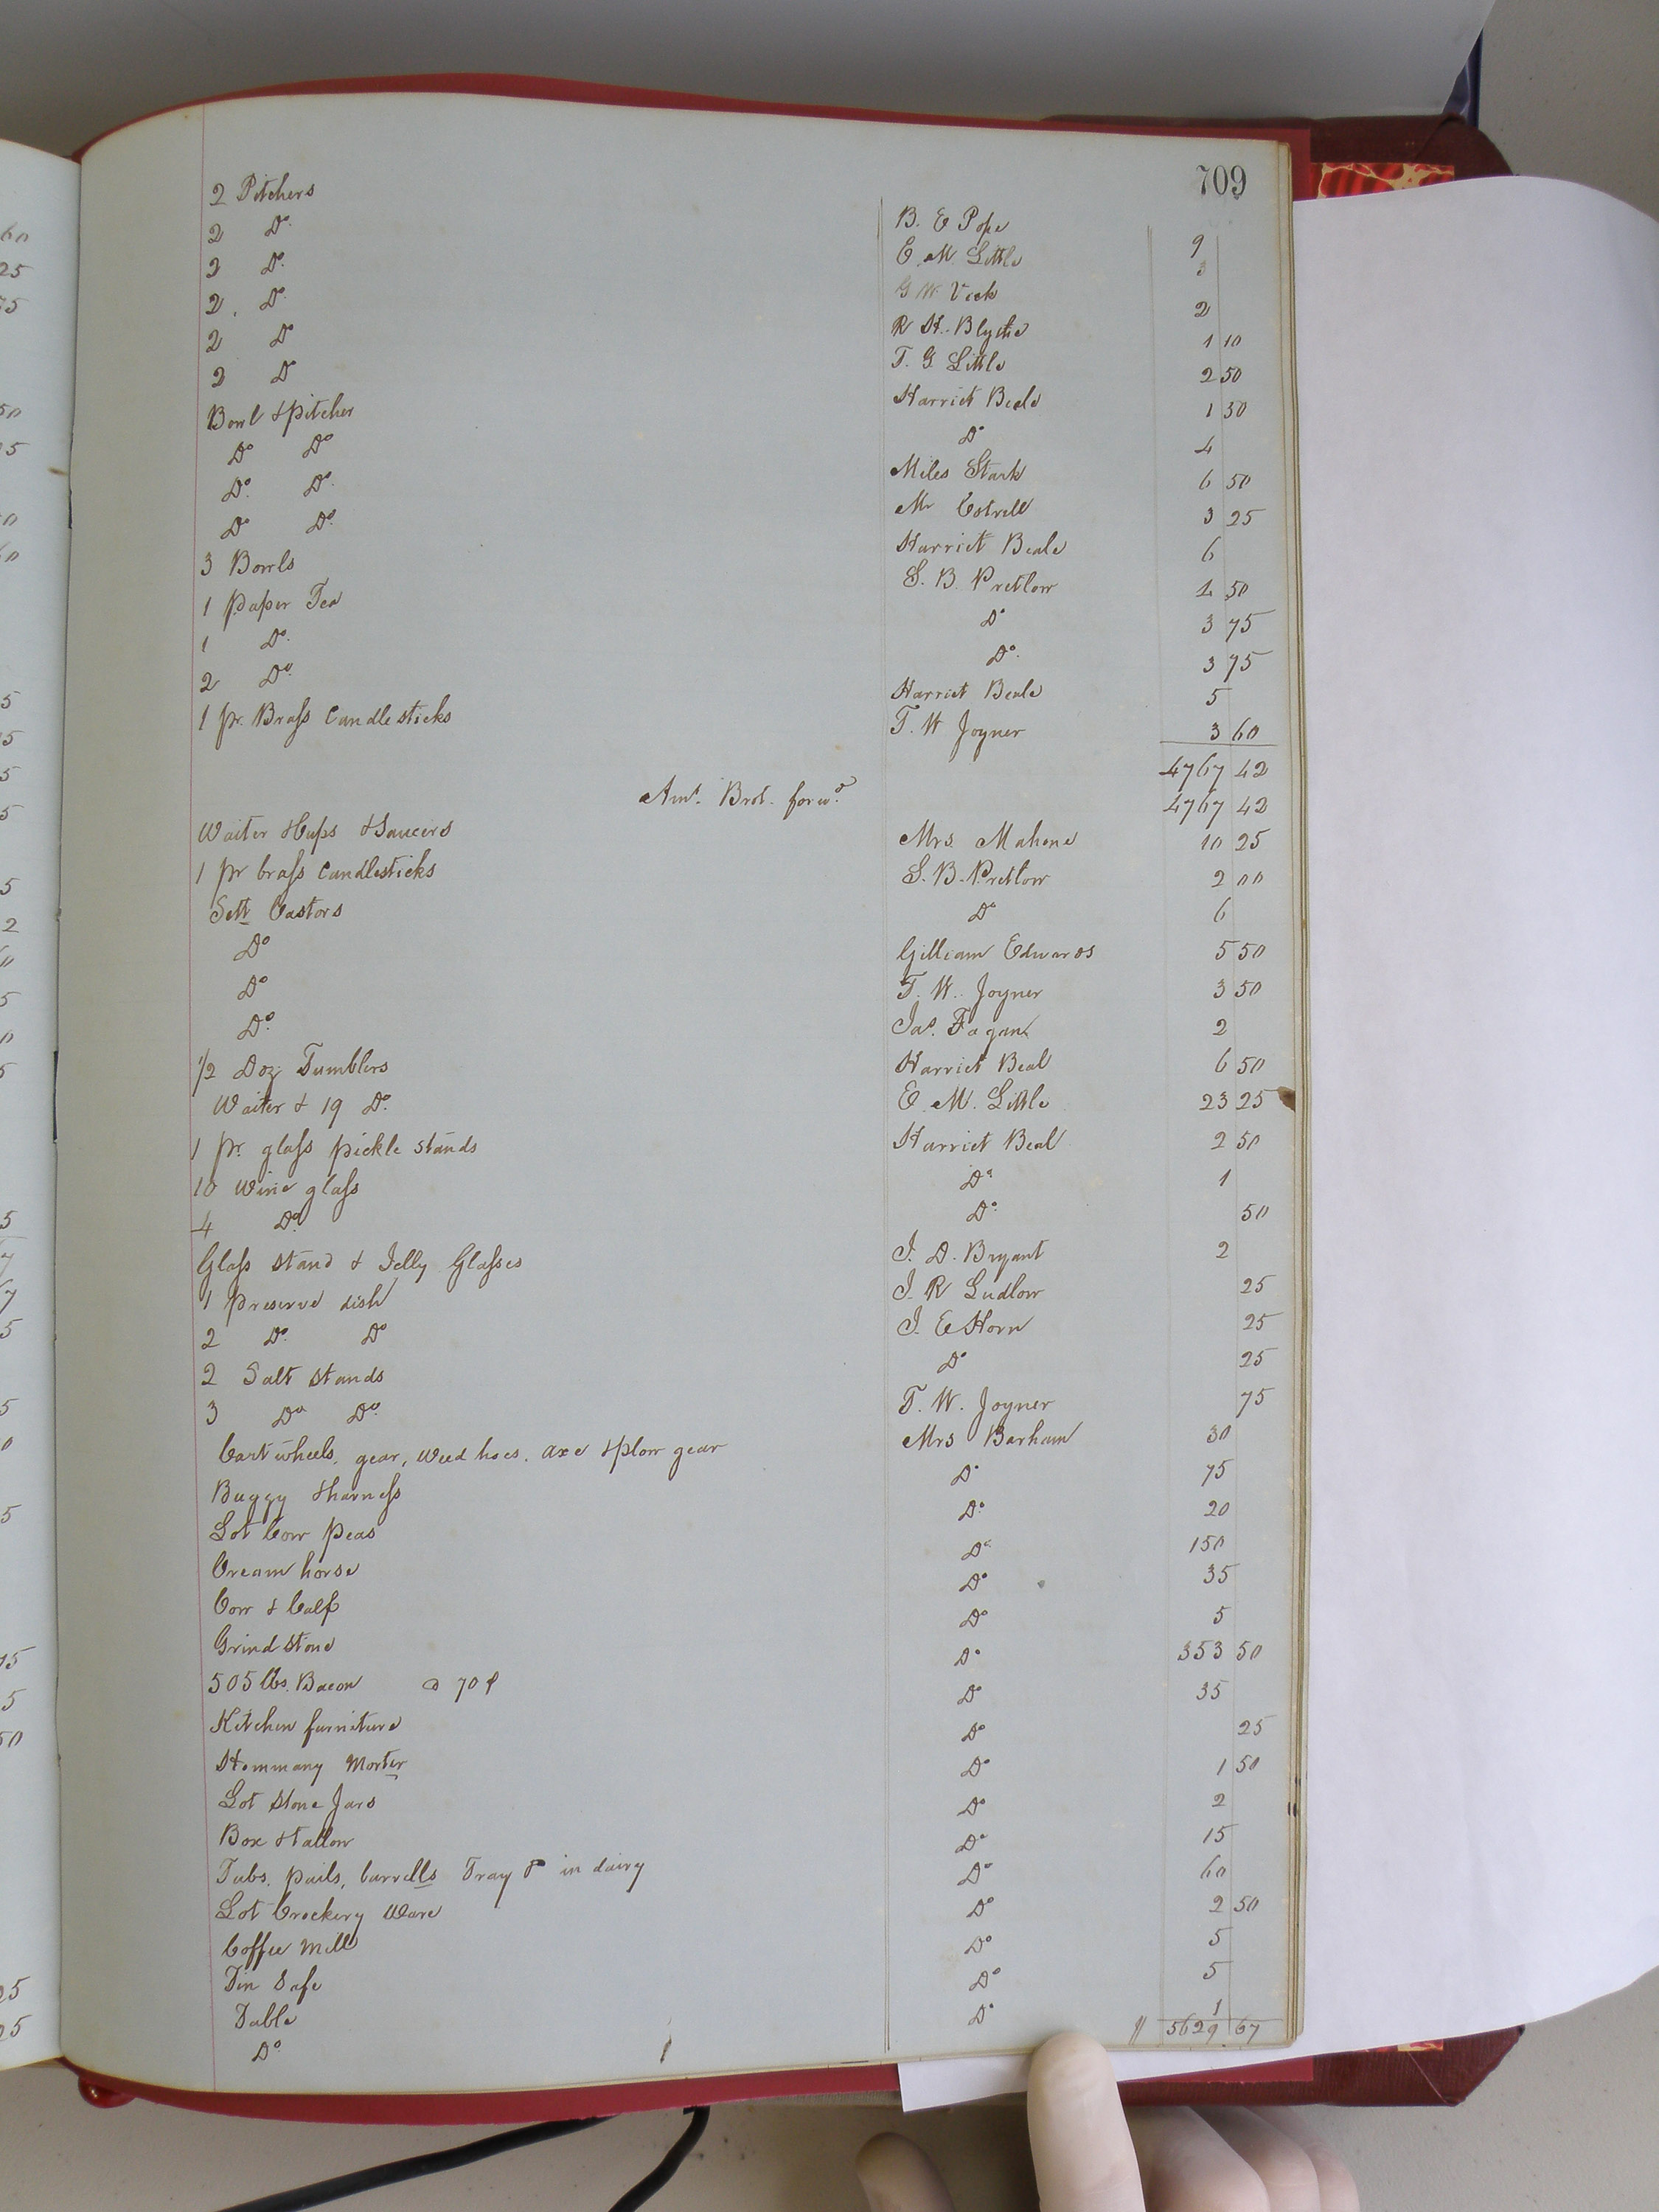 709
2 Pitchers B. E Pope 9
2 Do. E. M. Little 3
2 Do. G W. Vick 2
2 Do. R H. Blythe 1 10
2 Do T. G Little 2 50
2 Do Harriet Beale 1 50
Bowl & pitcher Do 4
Do Do Miles Stark 6 50
Do. Do. Mr Cotrell 3 25
Do Do. Harriet Beale 6
3 Bowls S. B. Pretlow 1 50
1 paper Tea Do 3 75
1 Do. Do. 3 75
2 Do. Harriet Beale 5
1 pr. Brass Candlesticks T. W Joyner 3 60
4767 42
Amt. Brot. forwd. 4767 42
Waiter & Cups & Saucers Mrs. Mahone 10 25
1 pr brass Candlesticks S. B. Pretlow 2 00
Sett Castors Do 6
Do Gilliam Edwards 5 50
Do T. W. Joyner 3 50
Do. Jas. Fagan 2
1/2 Doz Tumblers Harriet Beal 6 50
Waiter & 19 Do. E. M. Little 23 25
1 pr. glass pickle stands Harriet Beal 2 50
10 Wine glass Do 1
4 Do. Do. 50
Glass stand & Jelly Glasses J. D. Bryant 2
1 preserve dish J. R Ludlow 25
2 Do. Do J. E Horn 25
2 Salt stands Do 25
3 Do Do. T. W. Joyner 75
Cart wheels, gear, weed hoes. axe & plow gear Mrs Barham 30
Buggy & harness Do 75
Lot Cow peas Do. 20
Cream horse Do. 150
Cow & Calf Do 35
Grindstone Do 5
505 lbs. Bacon @ 70¢ Do 353 50
Kitchen furniture Do 35
Hommany Morter Do 25
Lot Stone Jars Do 1 50
Box & tallow Do 2
Tubs. pails, barrells Tray & in dairy Do 15
Lot Crockery Ware Do 60
Coffee Mill Do 2 50
Tin Safe Do 5
Table Do 5
Do Do 1
5629 67